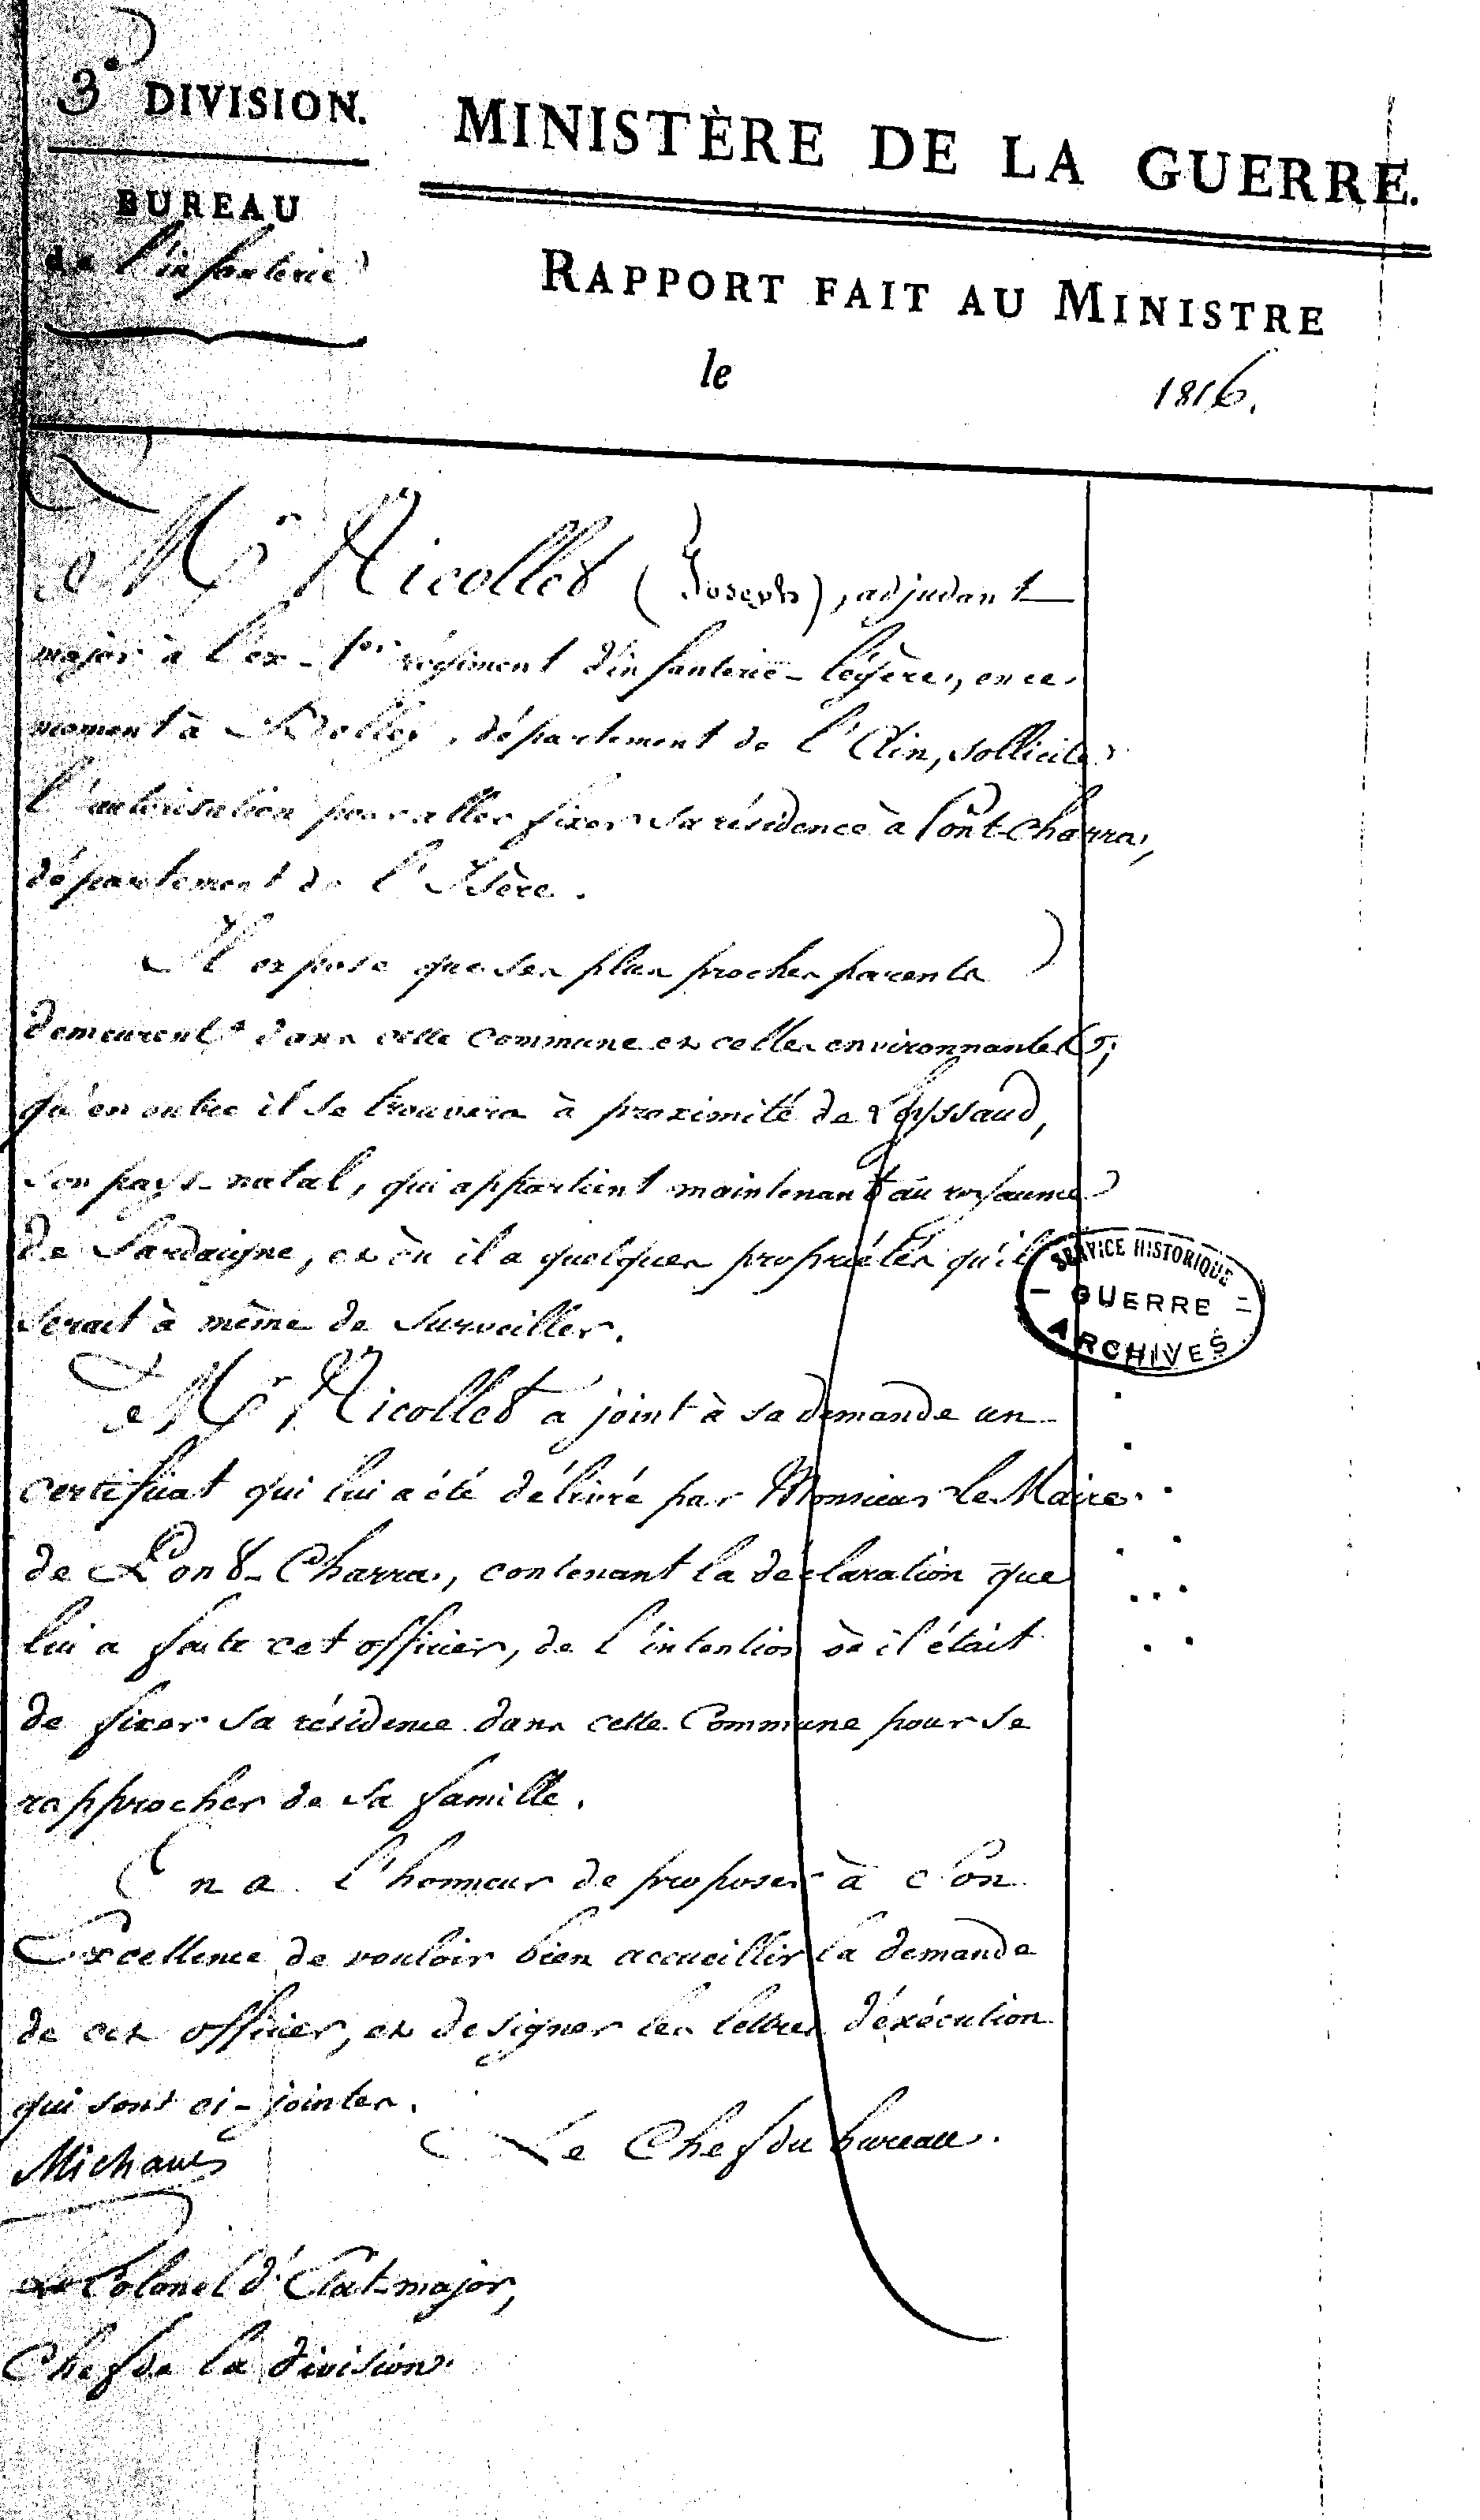 3e DIVISION.
BUREAU
de l'infanterie
MINISTÈRE DE LA GUERRE.
RAPPORT FAIT AU MINISTRE
le 1816.
Mr Nicollet (Joseph), adjudant
major à l'ex-1er régiment d'infanterie-légère, en ce
moment à Belley, département de l'Ain, sollicite
l'autorisation pour aller fixer sa résidence à Pont-Charra,
département de l'Isère.
Il expose que ses plus proches parents
demeurent dans cette commune et celles environnantes;
qu'en outre il se trouvera à proximité de
son pays-natal, qui appartient maintenant au royaume
de Sardaigne, et où il a quelques propriétés qu'il
serait à même de surveiller.
Mr Nicollet a joint à sa demande un
certificat qui lui a été délivré par Monsieur Le Maire
de Pont-Charra, contenant la déclaration que
lui a faite cet officier, de l'intention où il était
de fixer sa résidence dans cette Commune pour se
rapprocher de sa famille.
On a l'honneur de proposer à Son
Excellence de vouloir bien accueillir la demande
de cet officier, et de signer les lettres d'exécution
qui sont ci-jointes.
Le Chef du bureau.
Le Colonel d'Etat-major,
Chef de la division.
SERVICE HISTORIQUE
GUERRE
ARCHIVES